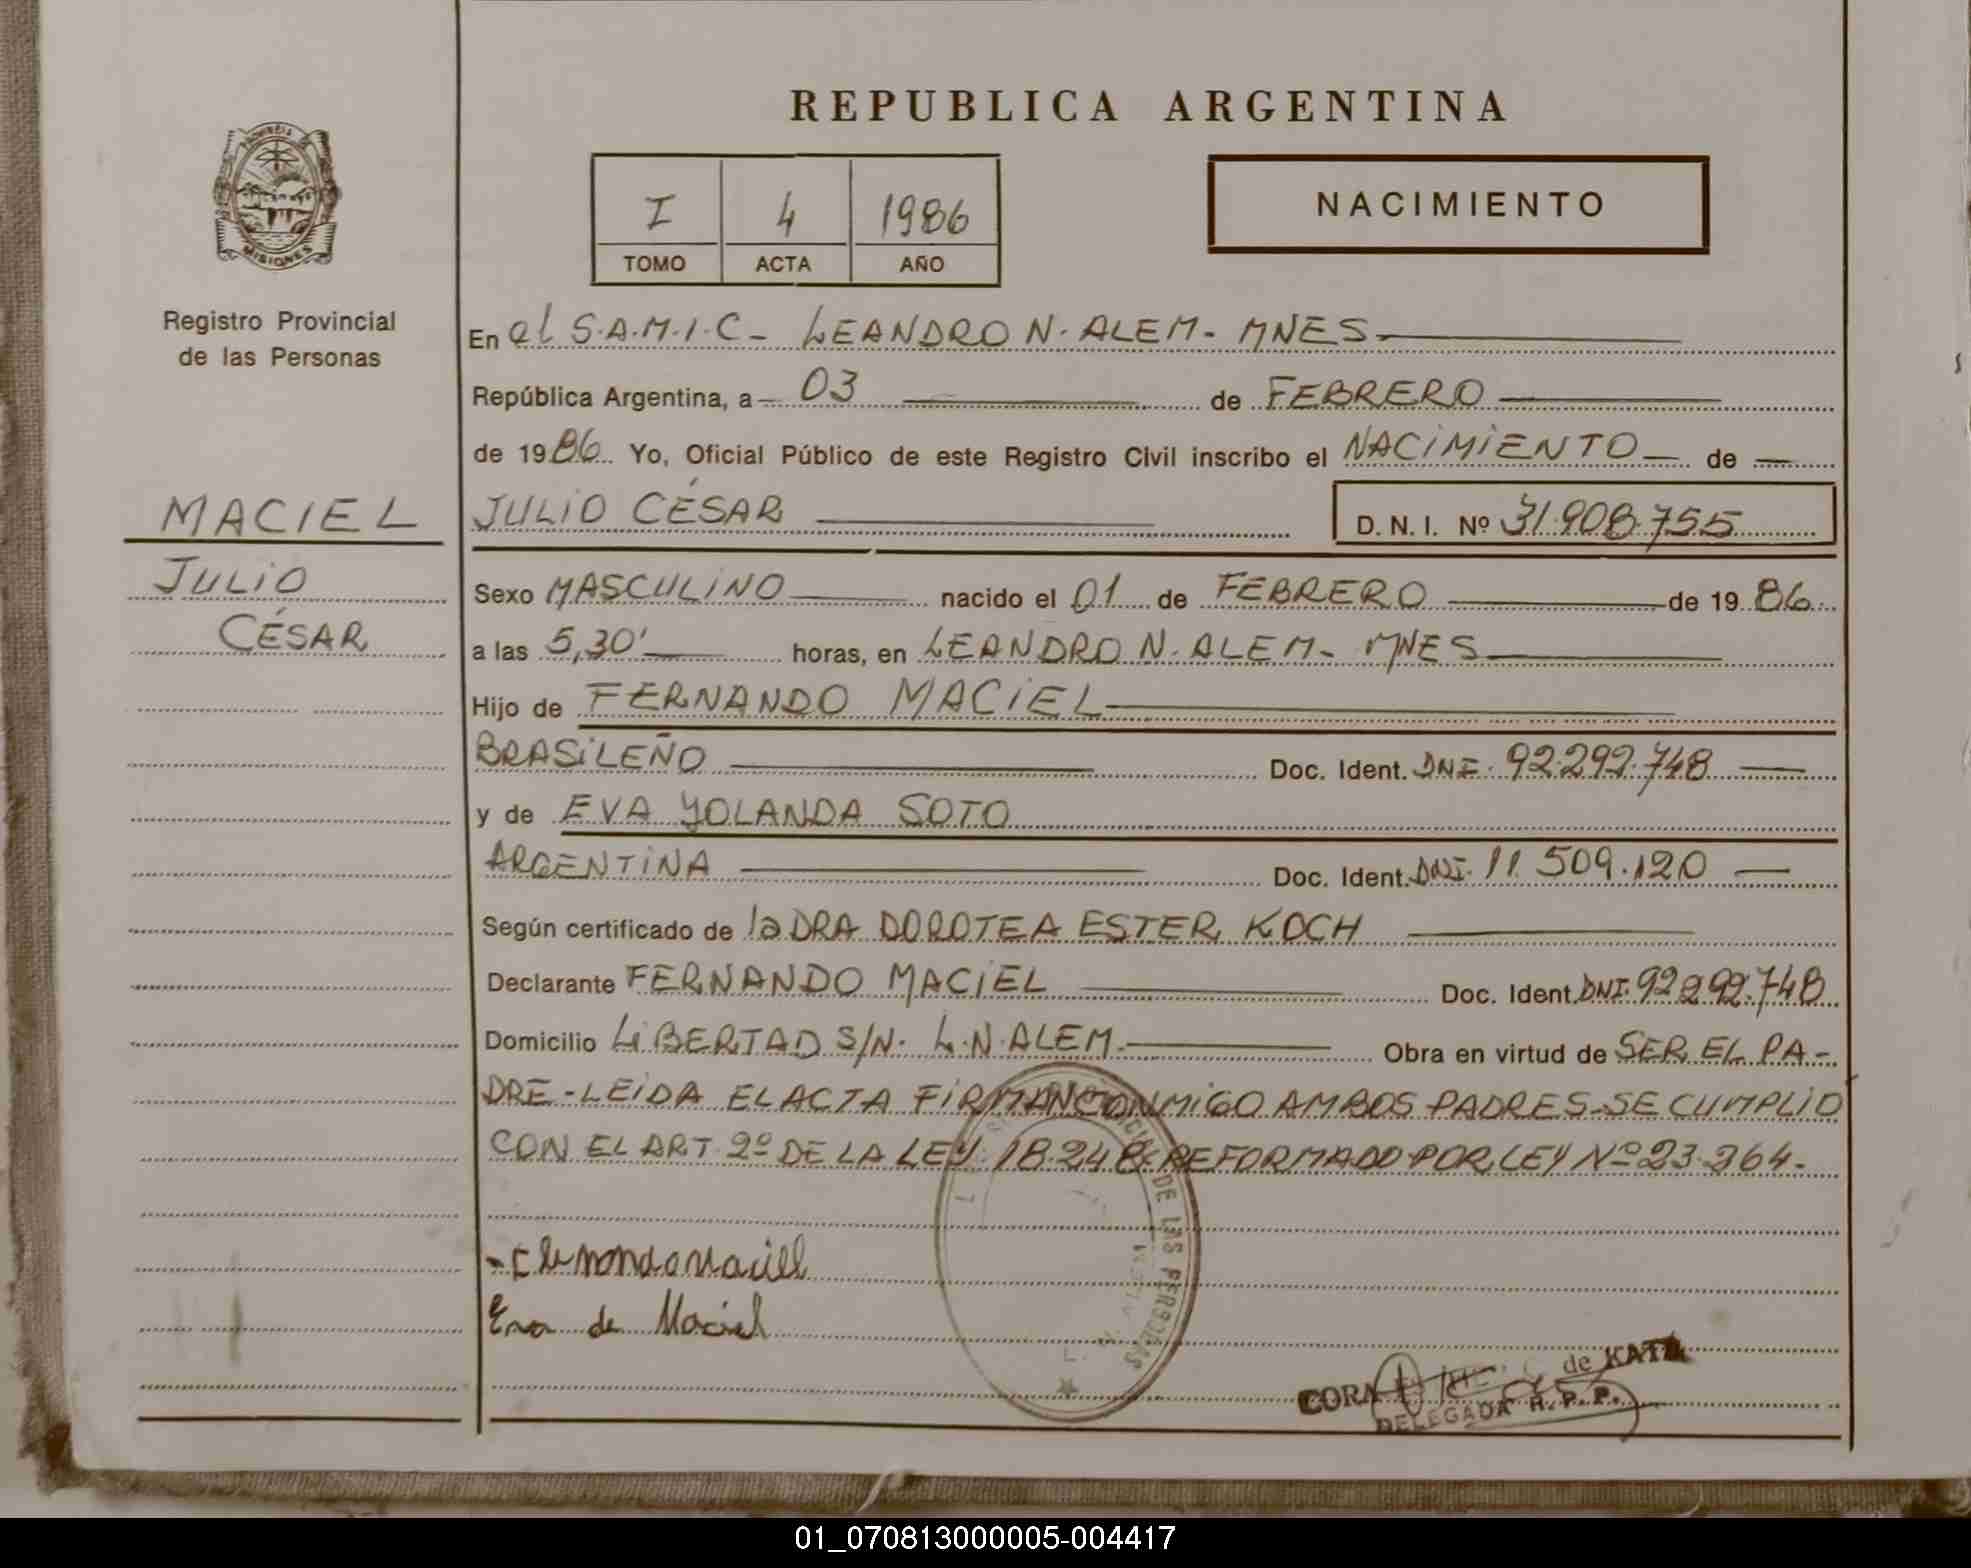 REPUBLICA ARGENTINA
PROVINCIA DE
MISIONES
Registro Provincial
de las Personas
I 4 1986
TOMO ACTA AÑO
NACIMIENTO
En el S.A.M.I.C - LEANDRO N. ALEM - MNES
República Argentina, a 03 de FEBRERO
de 1986 Yo, Oficial Público de este Registro Civil inscribo el NACIMIENTO de
MACIEL
JULIO CÉSAR
JULIO CÉSAR D. N. I. Nº 31.908.755
Sexo MASCULINO nacido el 01 de FEBRERO de 1986
a las 5,30' horas, en LEANDRO N. ALEM - MNES
Hijo de FERNANDO MACIEL
BRASILEÑO Doc. Ident. DNI. 92.292.748
y de EVA YOLANDA SOTO
ARGENTINA Doc. Ident. DNI. 11.509.120
Según certificado de la DRA DOROTEA ESTER KOCH
Declarante FERNANDO MACIEL Doc. Ident. DNI. 92.292.748
Domicilio LIBERTAD S/N. L.N.ALEM. Obra en virtud de SER EL PA-
DRE - LEIDA EL ACTA FIRMAN CONMIGO AMBOS PADRES - SE CUMPLIO
CON EL ART. 2º DE LA LEY 18.248 REFORMADO POR LEY Nº 23.264.
DE LAS PERSONAS
Maciel
Eva de Maciel
CORA de KATZ
DELEGADA R. P. P.
01_070813000005-004417